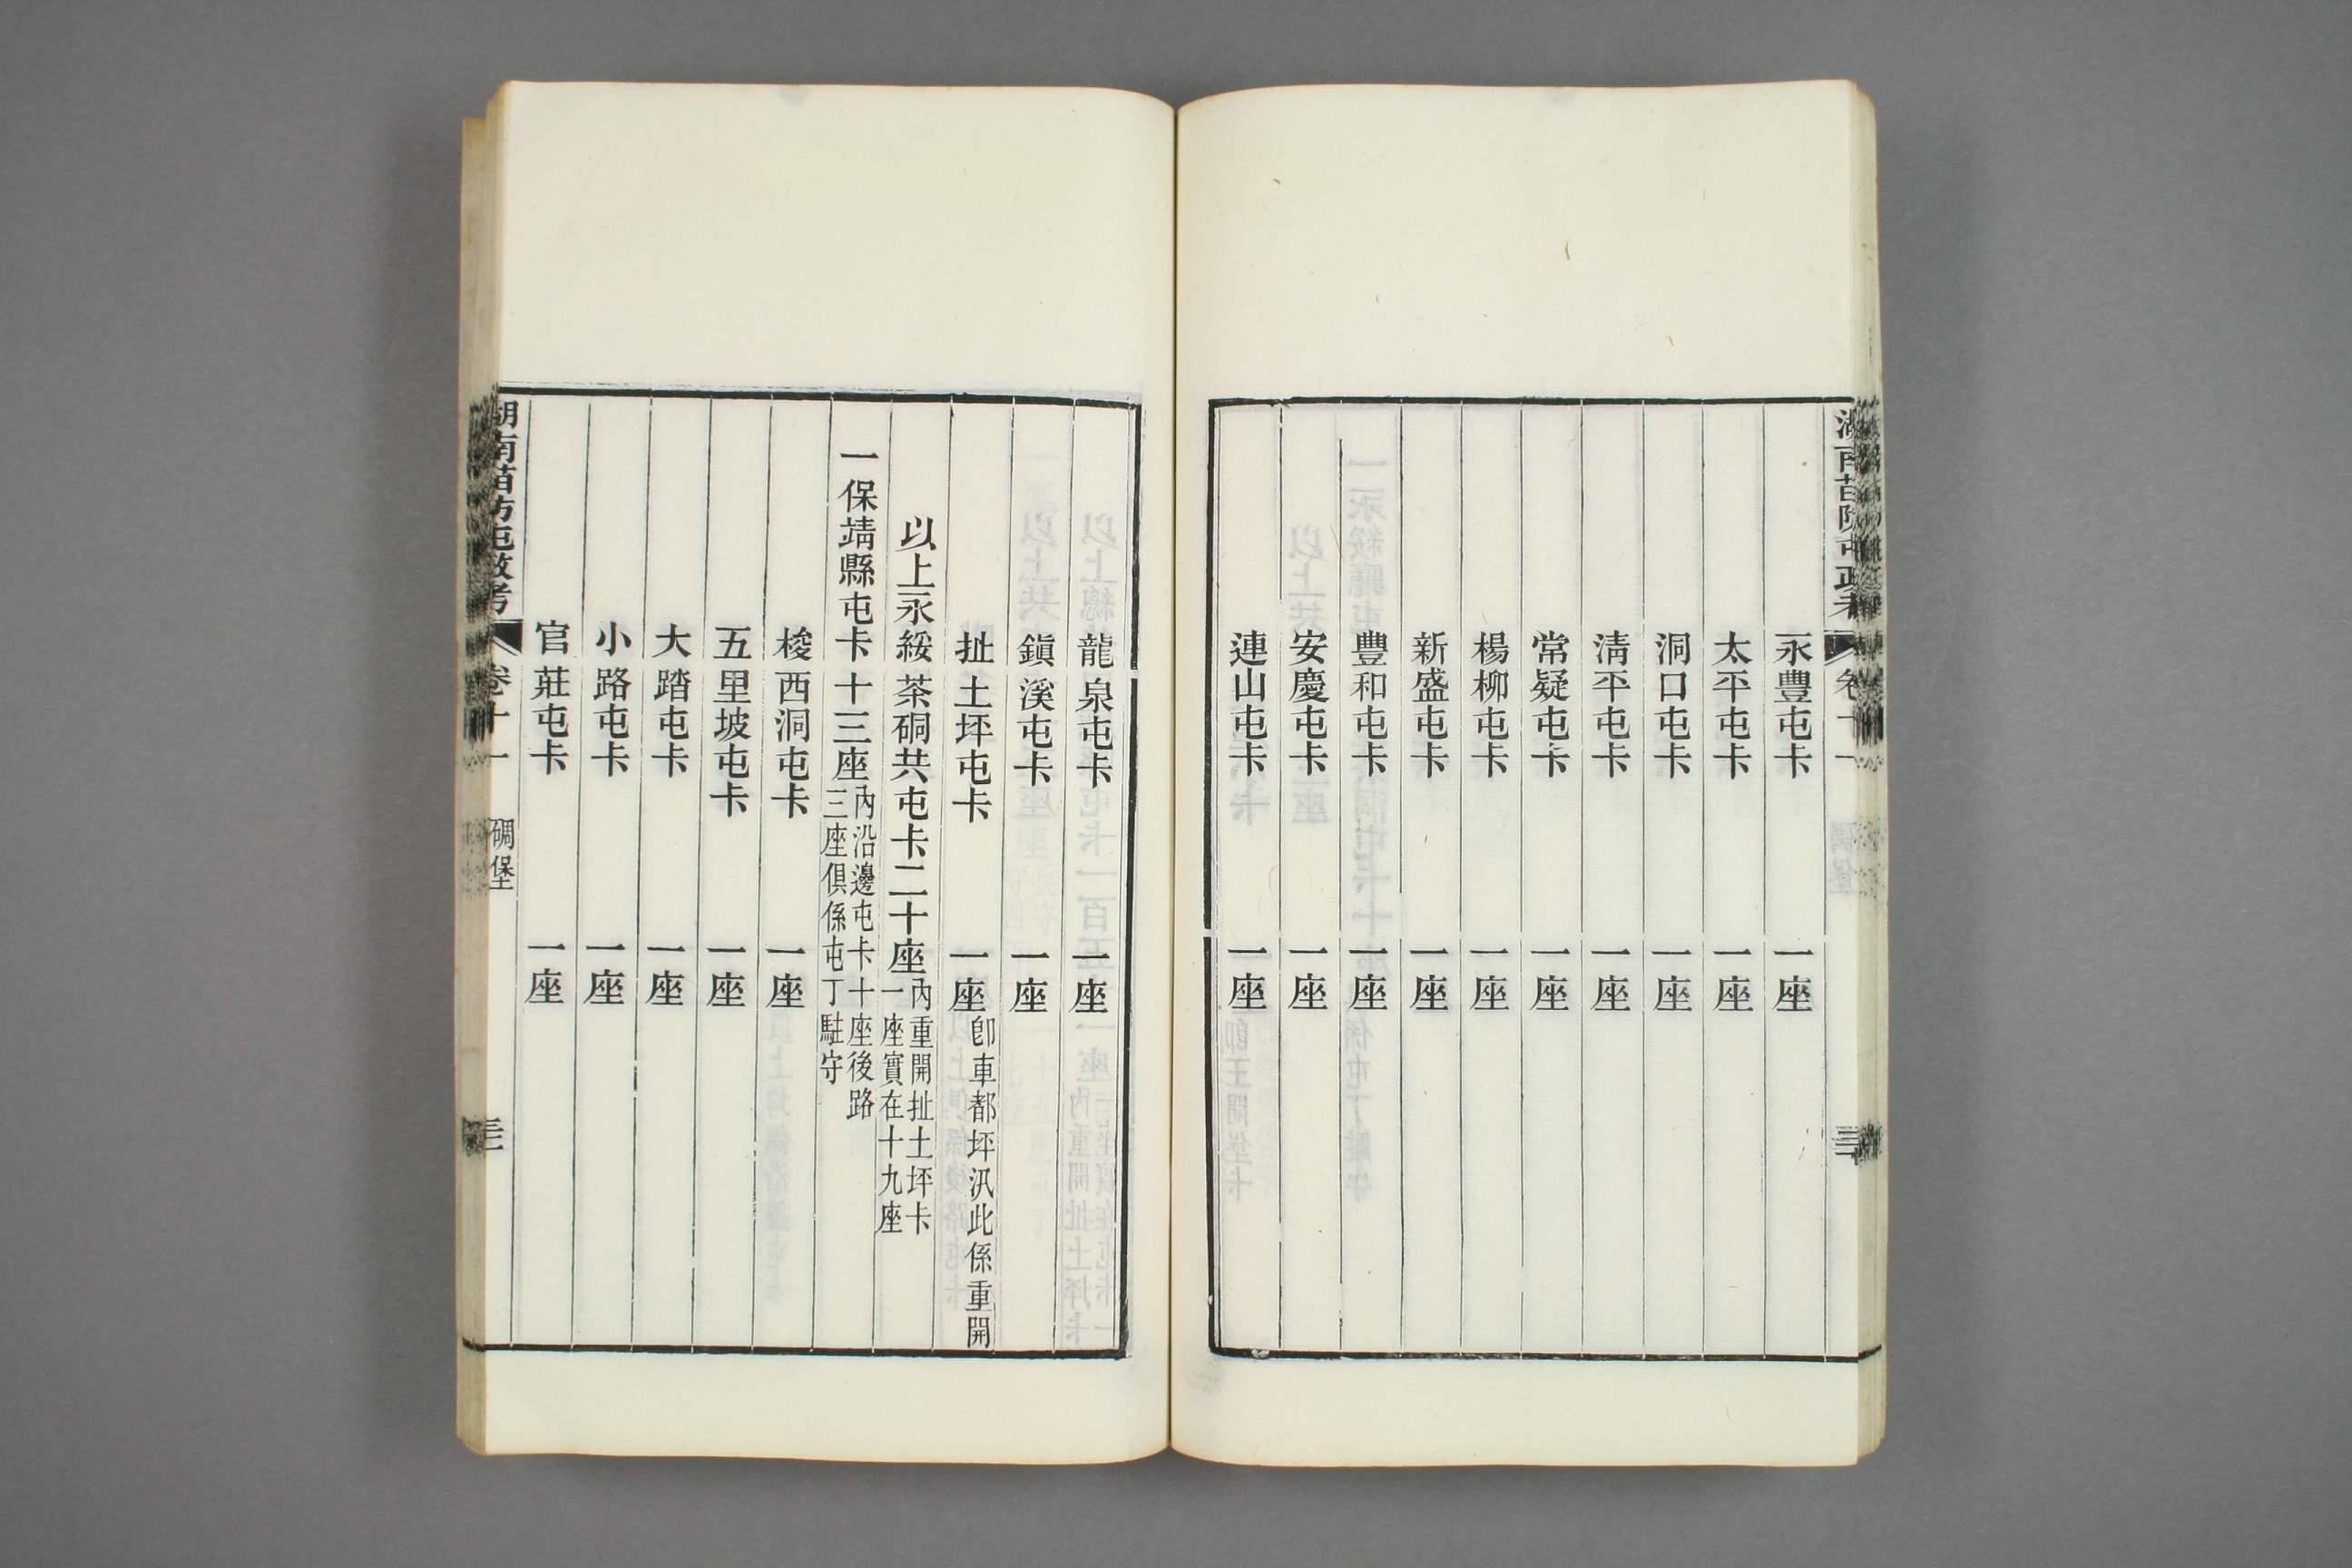 湖南苗防屯政考 卷十一
永豐屯卡 一座
太平屯卡 一座
洞口屯卡 一座
淸平屯卡 一座
常疑屯卡 一座
楊柳屯卡 一座
新盛屯卡 一座
豐和屯卡 一座
安慶屯卡 一座
連山屯卡 一座
龍泉屯卡 一座
鎭溪屯卡 一座
扯土坪屯卡 一座 卽車都坪汛此係重開
以上永綏茶硐共屯卡二十座 內重開扯土坪卡一座實在十九座
一保靖縣屯卡十三座 內沿邊屯卡十座後路三座俱係屯丁駐守
梭西洞屯卡 一座
五里坡屯卡 一座
大踏屯卡 一座
小路屯卡 一座
官莊屯卡 一座
湖南苗防屯政考 卷十一 碉堡